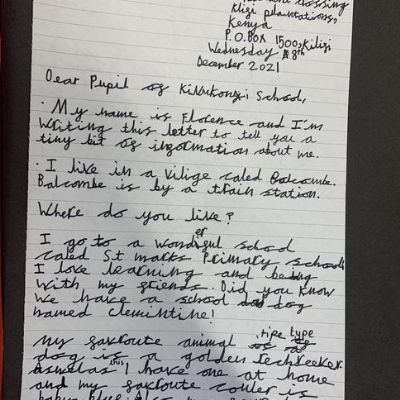 Crossing
Kligi plantations,
Kenya
P.O.BOX 1500, Kiligi
Wednesday 8th
December 2021
Dear Pupil of Kikukongi School,
My name is Florence and I'm
writing this letter to tell you a
tiny bit of information about me.
I like in a vilige caled Balcombe.
Balcombe is by a train station.
Where do you like?
I go to a wonderful school
caled St marks Primary school
I love learning and being
with my friends. Did you know
we have a school dog
named clemintine!
ripe type
my favroute animal
dog is a golden
aswelas this I have one at home
and my favroute couler is
baby blue.